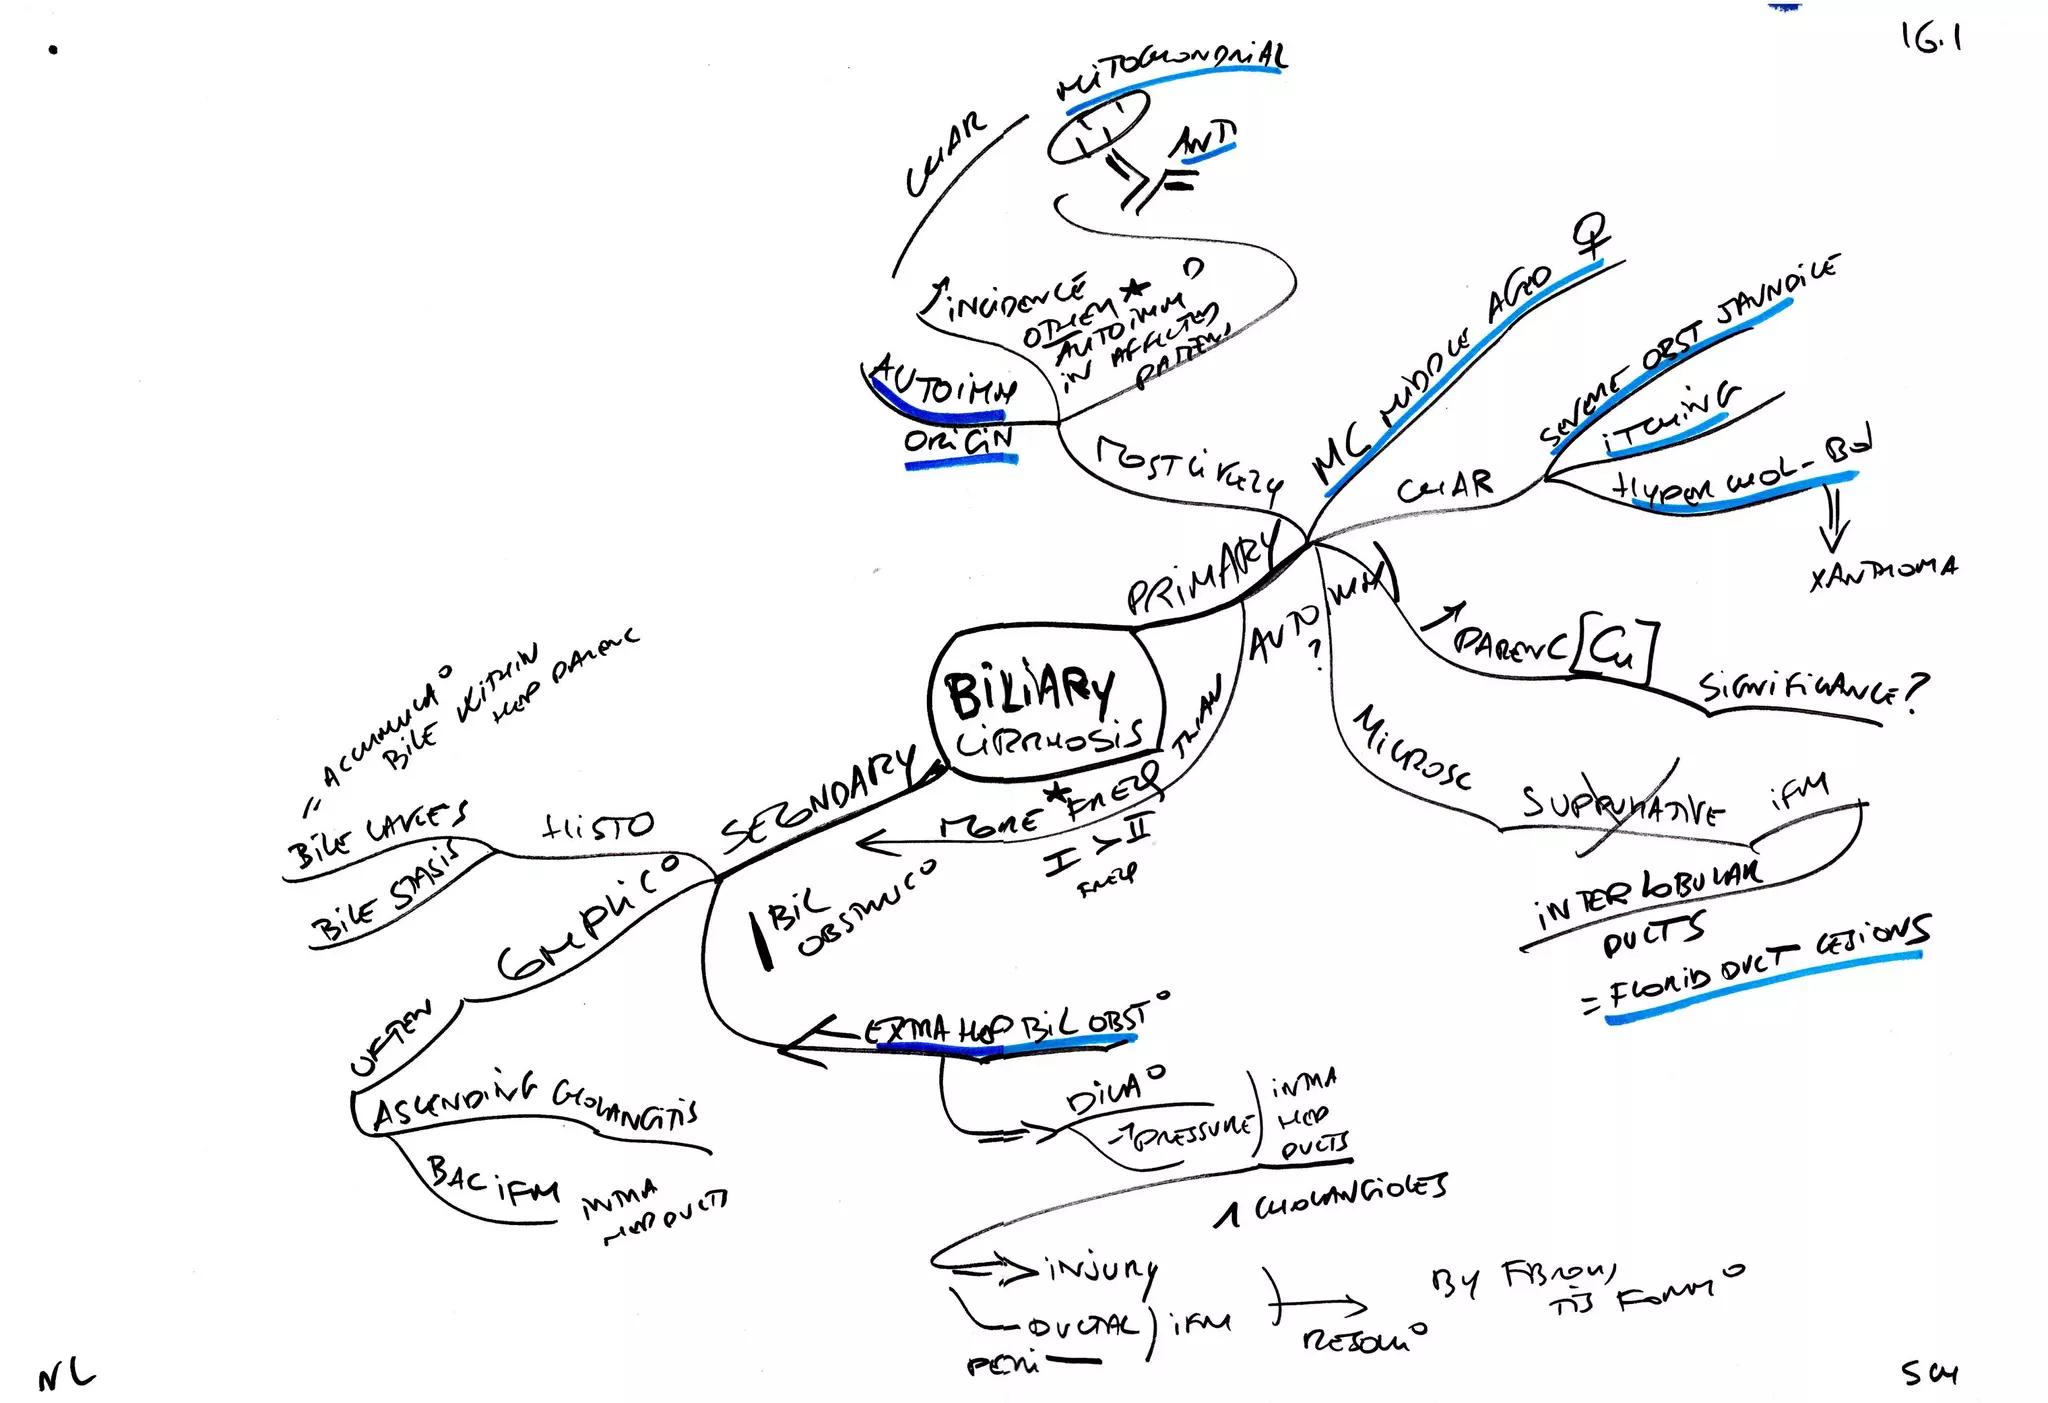 16.1
MITOCHONDRIAL
CHAR
ANTI
↗INCIDENCE
OTHER * D
AUTOIMM
IN AFFECTED
PATIENTS
AUTOIMM
ORIGIN
MOST LIKELY
MC MIDDLE AGED ♀
CHAR
SEVERE OBST JAUNDICE
ITCHING
HYPER CHOL-
XANTHOMA
PRIMARY
AUTO IMM
?
↗PARENC [Cu]
SIGNIFICANCE?
MICROSC
SUPPURATIVE IFM
INTERLOBULAR
DUCTS
= FLORID DUCT LESIONS
BILIARY
CIRRHOSIS
MORE * FREQ THAN
I > II
FREQ
SECONDARY
HISTO
"ACCUMULA°
BILE WITHIN
HEP PARENC
BILE LAKES
BILE STASIS
COMPLIC°
OFTEN
ASCENDING CHOLANGITIS
BAC IFM INTRA
HEP DUCTS
BIL
OBSTRUC°
EXTRA HEP BIL OBST°
DILA°
↗PRESSURE
INTRA
HEP
DUCTS
1 CHOLANGIOLES
⇒ INJURY
DUCTAL ) IFM
PERI —
RESOLU°
BY FIBROUS
TIS FORM°
NL